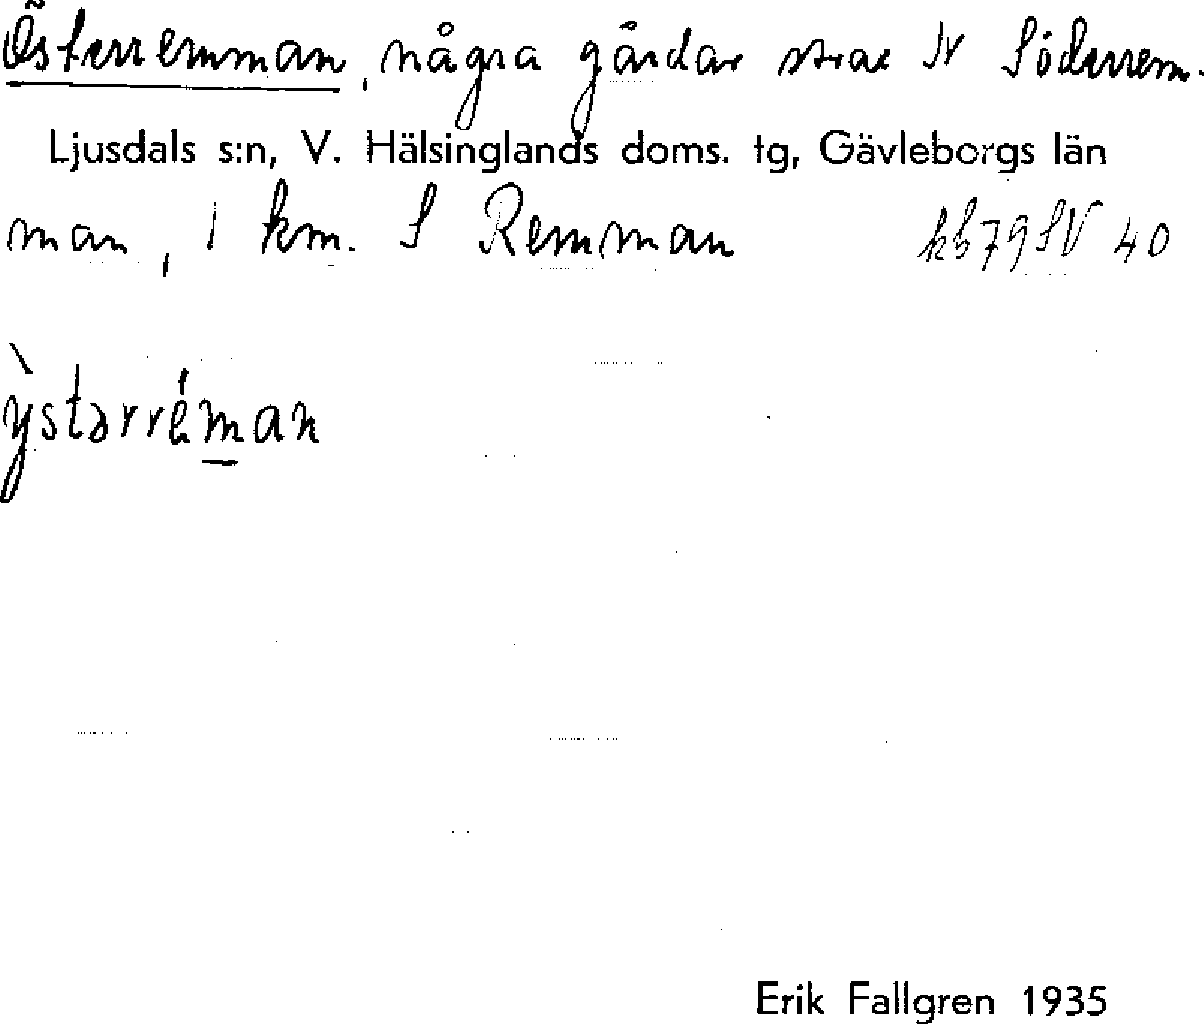 Österremman, några gårdar strax N Söderrem-
Ljusdals s:n, V. Hälsinglands doms. tg, Gävleborgs län
man, 1 km. S Remman kb79SV 40
ỳstərréman
Erik Fallgren 1935